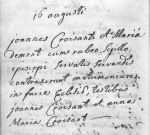 16 augusti
joannes Croisant et Maria
demant cum rubro sigillo
episcopi servatis servandis
contraxerunt matrimonium
in facie Ecclesiæ testibus
joannes Croisant et anna
Maria Croisant